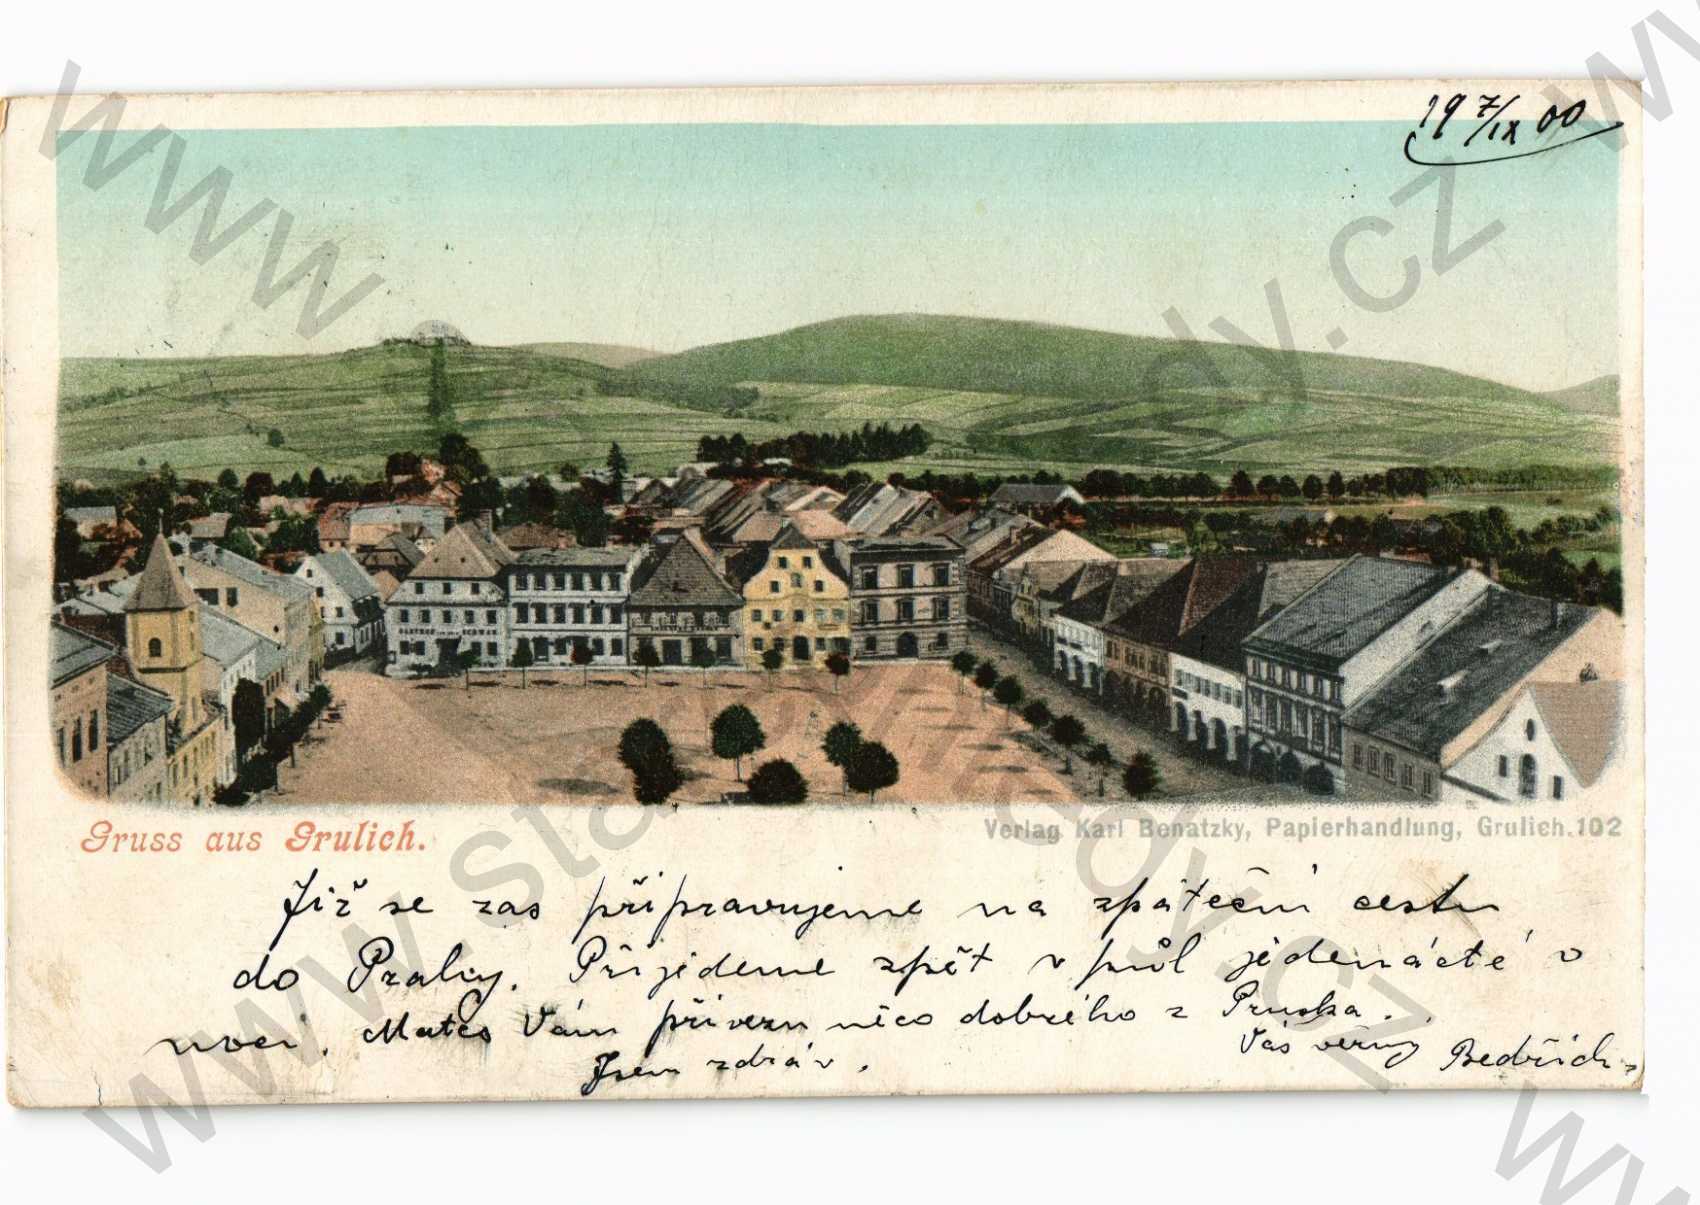 19 7/IX 00
GASTHOF SCHWAN
Gruss aus Grulich.
Verlag Karl Benatzky, Papierhandlung, Grulich. 102
Již se zas připravujeme na zpáteční cestu
do Prahy. Přijedeme zpět v půl jedenácté v
noci. Matco Vám přivezu něco dobrého z Pruska.
Jsem zdráv.
Váš věrný Bedřich
www.starepohlednice.cz